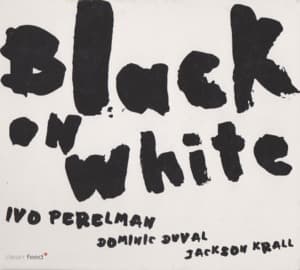 Black
on
white
IVO PERELMAN
DOMINIC DUVAL
JACKSON KRALL
clean feed